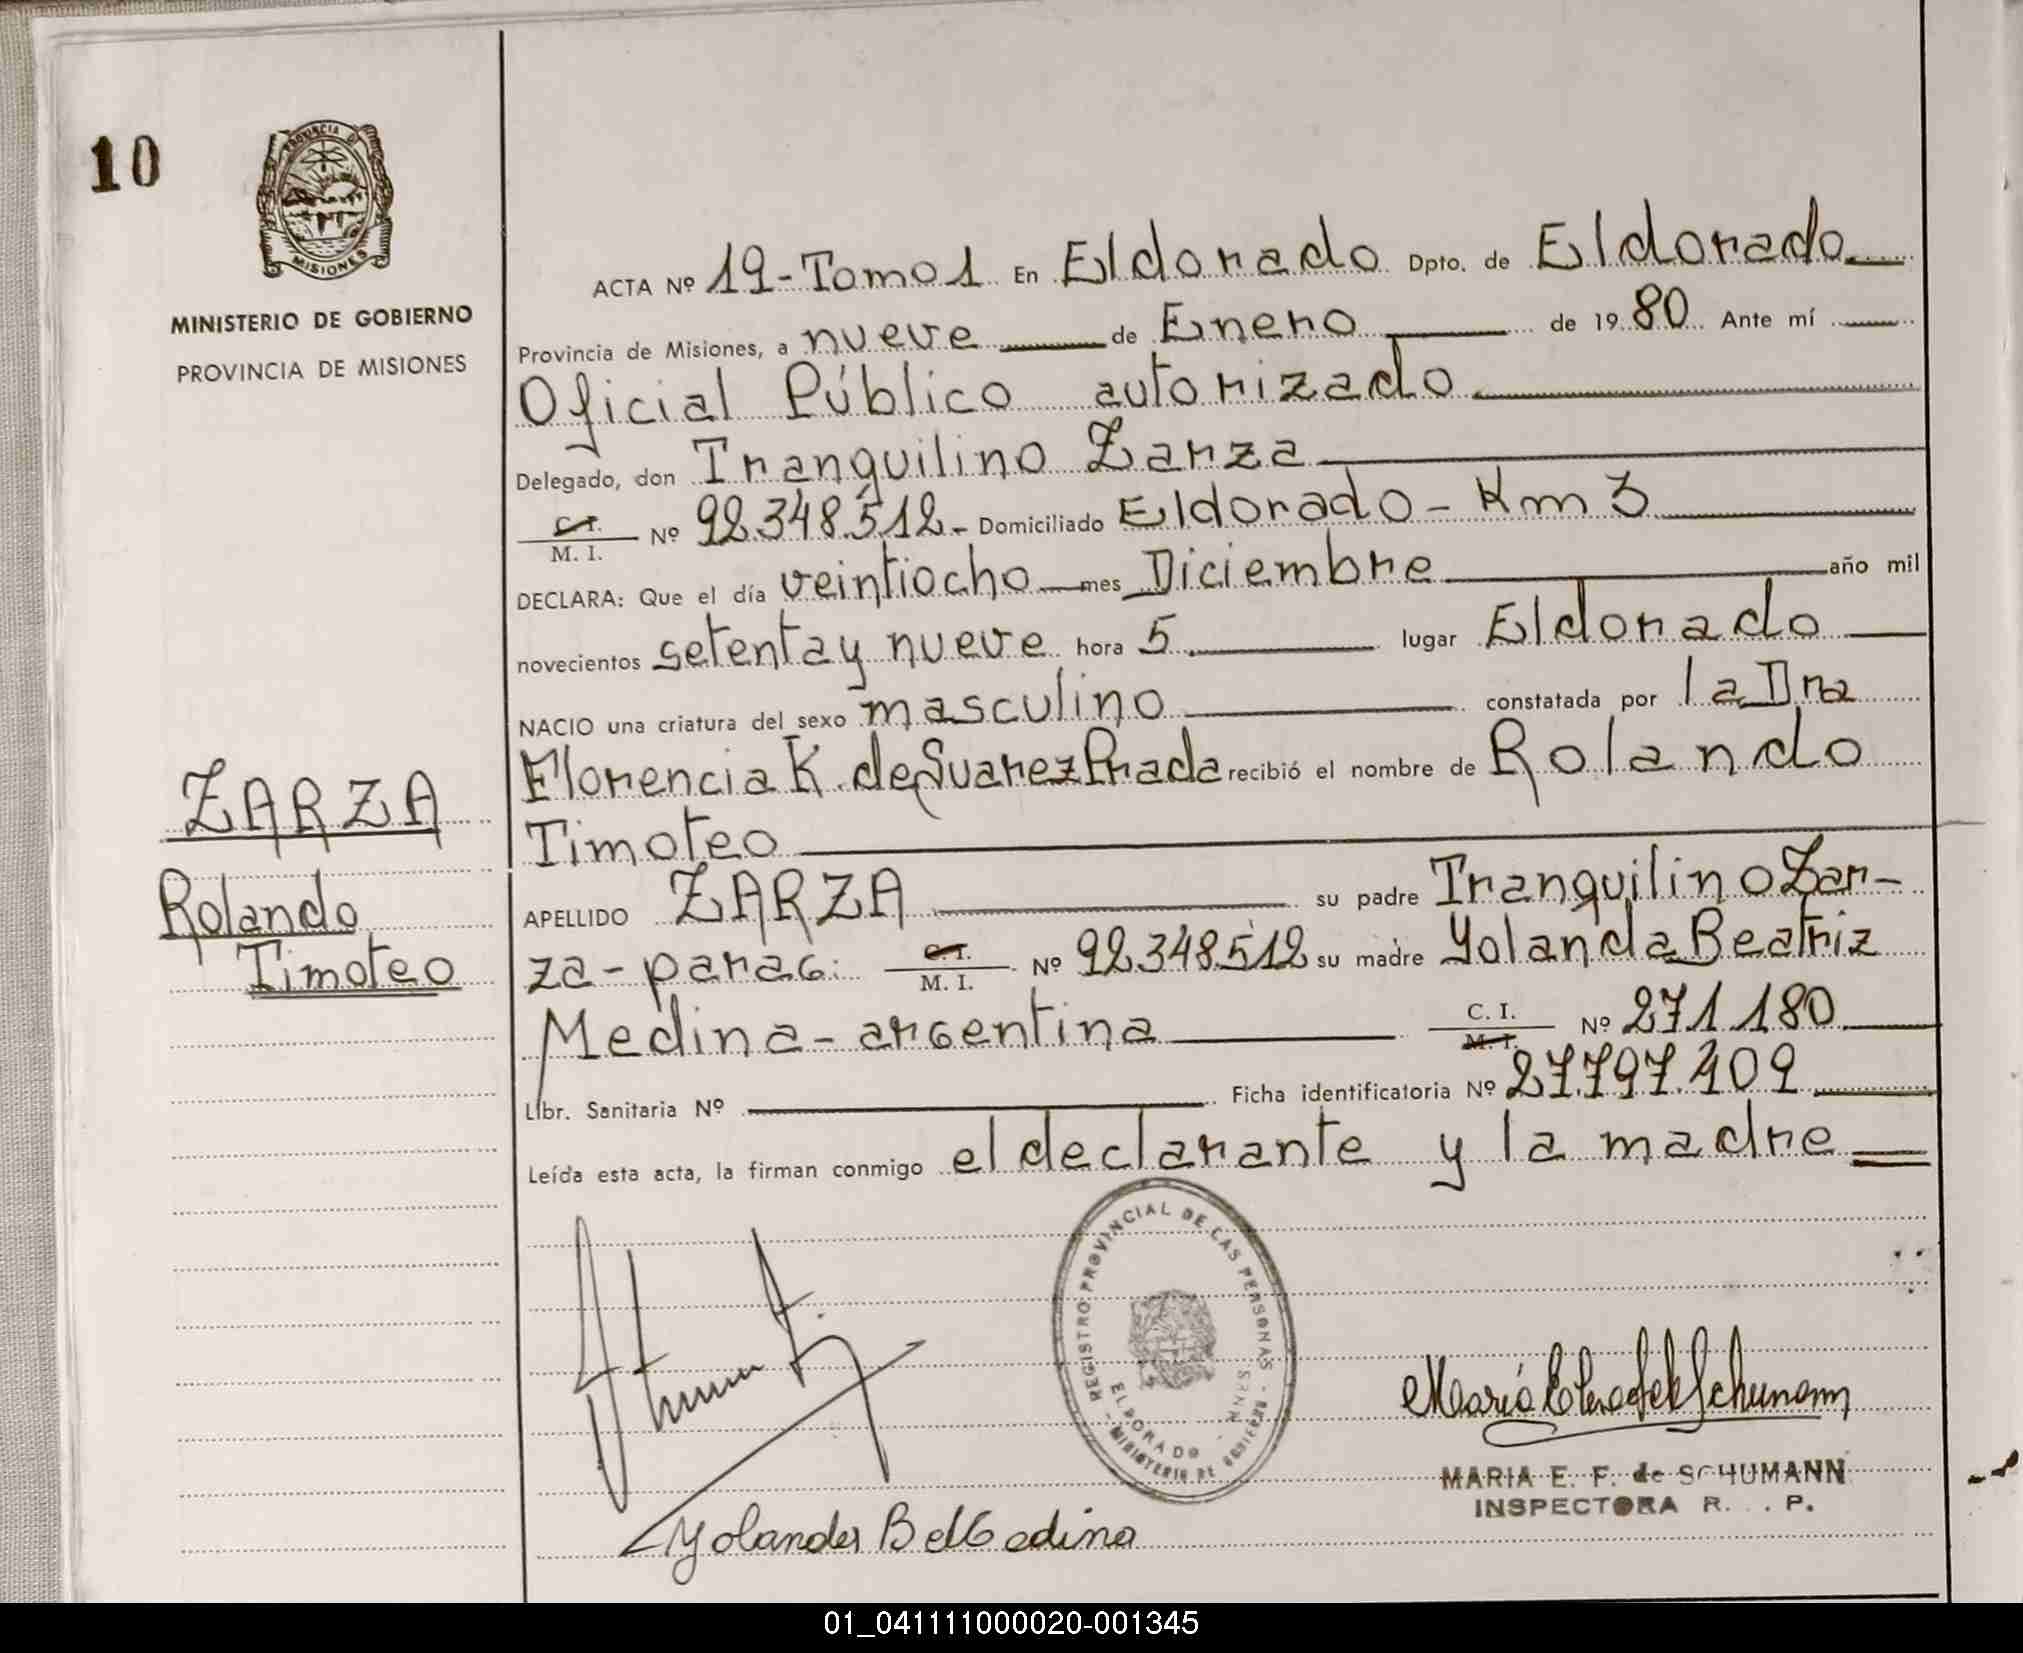 10
PROVINCIA DE
MISIONES
MINISTERIO DE GOBIERNO
PROVINCIA DE MISIONES
ZARZA
Rolando
Timoteo
ACTA Nº 19-Tomo 1 En Eldorado Dpto. de Eldorado
Provincia de Misiones, a nueve de Enero de 1980 Ante mí
Oficial Público autorizado
Delegado, don Tranquilino Zarza
C. I.
M. I. Nº 92.348.512- Domiciliado Eldorado - Km 3
DECLARA: Que el día veintiocho mes Diciembre año mil
novecientos setenta y nueve hora 5 lugar Eldorado
NACIO una criatura del sexo masculino constatada por la Dra
Florencia K. de Suarez Prada recibió el nombre de Rolando
Timoteo
APELLIDO ZARZA su padre Tranquilino Zar-
za - parag: C. I. M. I. Nº 92.348.512 su madre Yolanda Beatriz
Medina - argentina C. I. M. I. Nº 271.180
Libr. Sanitaria Nº Ficha identificatoria Nº 27.797.409
Leída esta acta, la firman conmigo el declarante y la madre
REGISTRO PROVINCIAL DE LAS PERSONAS
ELDORADO
MINISTERIO DE GOBIERNO
MARIA E. F. de SCHUMANN
INSPECTORA R. . P.
Yolanda B de Medina
01_041111000020-001345